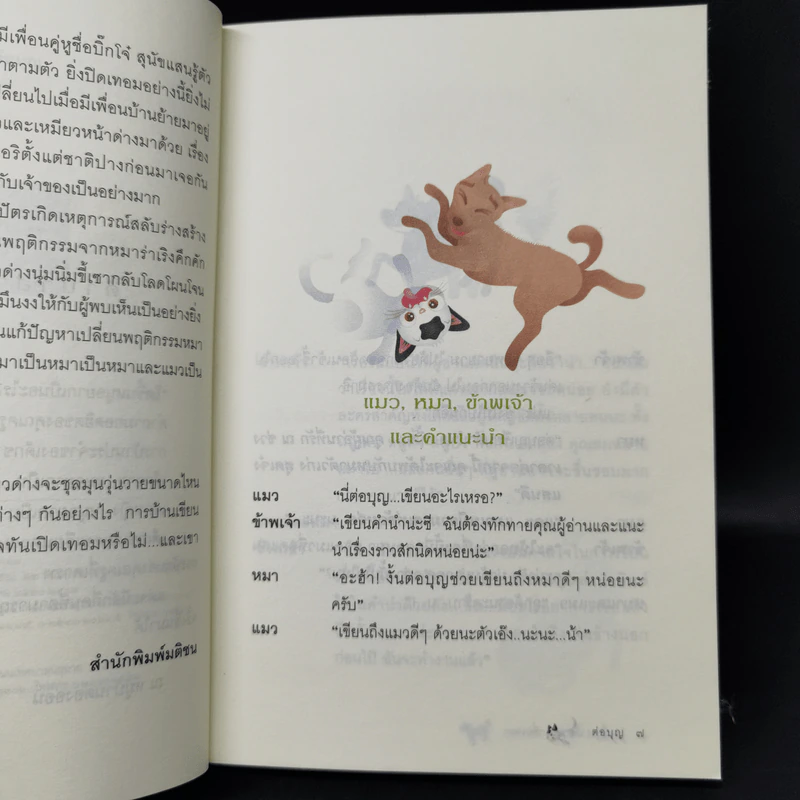 มีเพื่อนคู่หูชื่อบิ๊กโจ๋ สุนัขแสนรู้ตัว
ตามตัว ยิ่งปิดเทอมอย่างนี้ยิ่งไม่
ลี่ยนไปเมื่อมีเพื่อนบ้านย้ายมาอยู่
และเหมียวหน้าด่างมาด้วย เรื่อง
อริตั้งแต่ชาติปางก่อนมาเจอกัน
กับเจ้าของเป็นอย่างมาก
ปัตรเกิดเหตุการณ์สลับร่างสร้าง
พฤติกรรมจากหมาร่าเริงคึกคัก
ด่างนุ่มนิ่มขี้เซากลับโลดโผนโจน
มึนงงให้กับผู้พบเห็นเป็นอย่างยิ่ง
นแก้ปัญหาเปลี่ยนพฤติกรรมหมา
มาเป็นหมาเป็นหมาและแมวเป็น
วด่างจะชุลมุนวุ่นวายขนาดไหน
ต่างๆ กันอย่างไร การบ้านเขียน
จทันเปิดเทอมหรือไม่...และเขา
สำนักพิมพ์มติชน
แมว, หมา, ข้าพเจ้า
และคำแนะนำ
แมว "นี่ต่อบุญ...เขียนอะไรเหรอ?"
ข้าพเจ้า "เขียนคำนำน่ะซี ฉันต้องทักทายคุณผู้อ่านและแนะ
นำเรื่องราวสักนิดหน่อยน่ะ"
หมา "อะฮ้า! งั้นต่อบุญช่วยเขียนถึงหมาดีๆ หน่อยนะ
ครับ"
แมว "เขียนถึงแมวดีๆ ด้วยนะตัวเอ๊ง..นะนะ...น้า"
ต่อบุญ ๗